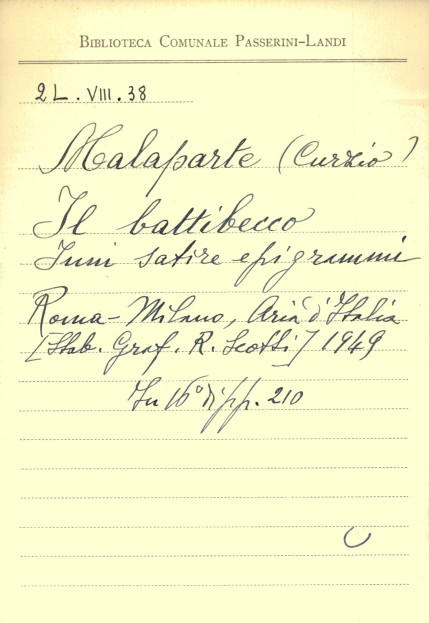 BIBLIOTECA COMUNALE PASSERINI-LANDI
2L. VIII. 38
Malaparte (Curzio)
Il battibecco
Inni satire epigrammi
Roma-Milano, Aria d'Italia
[Stab. Graf. R. Scotti] 1949
In 16° di pp. 210